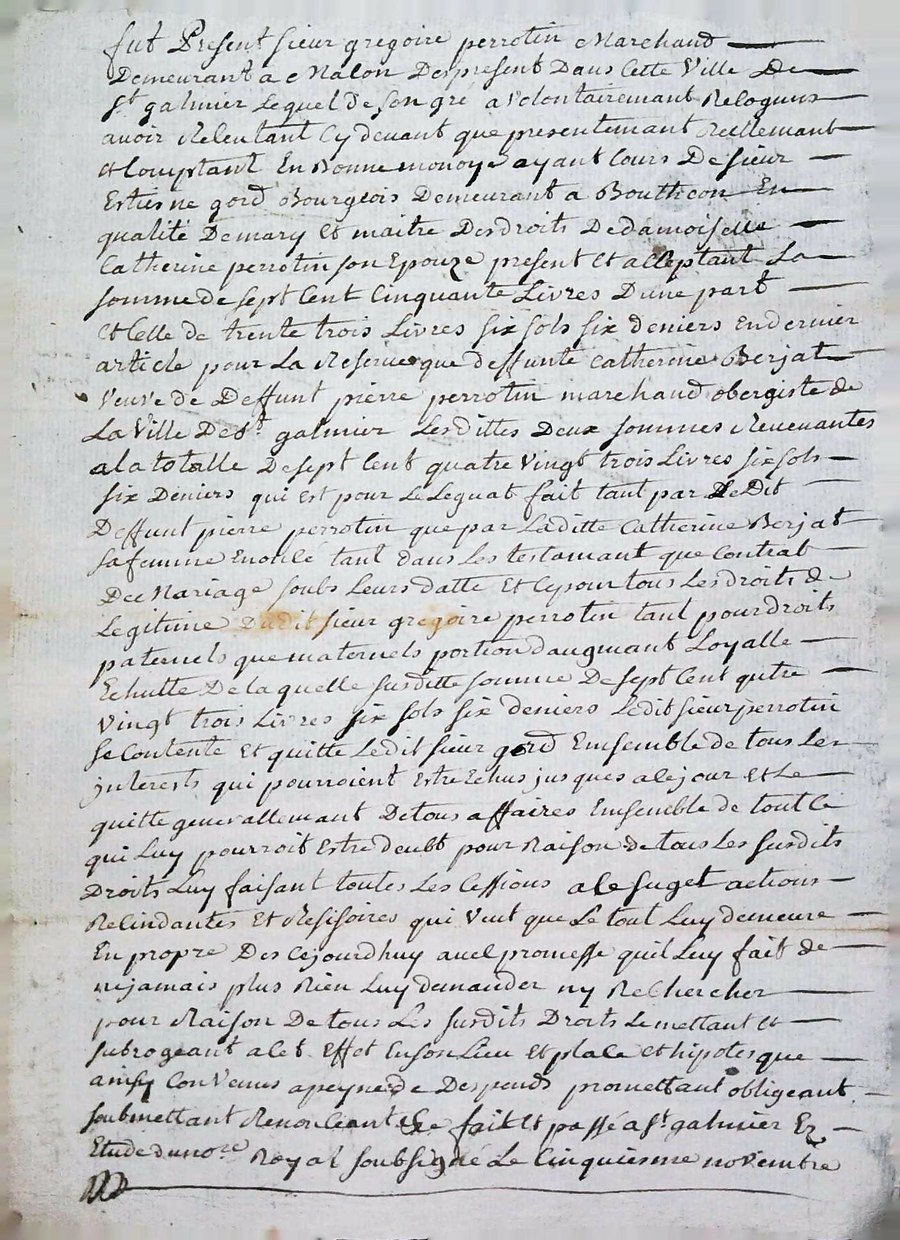 fut Present sieur gregoire perrotin Marchand
Demeurant a Nalon Despresent Dans Cette Ville De
St galmier Lequel de son gré a volontairemant Recogum
avoir Receu tant Cy devant que presentemant Reellemant
et Comptant En Bonne monoye ayant Cours De sieur
Estiesne gord Bourgeois Demeurant a Boutheon En
qualité De mary Et maitre Des droits De damoiselle
Catherine perrotin son Epouze present et acceptant La
somme de sept Cent Cinquante Livres Dune part
Et Celle de trente trois Livres six sols six deniers En dernier
article pour La Reserve que deffunte Catherine Berjat
Veuve de Deffunt pierre perrotin marchand obergiste de
La Ville De St galmier Lesdittes Deux sommes Revenantes
a la totalle De sept Cent quatre Vingt trois Livres six sols
six Deniers qui Est pour Le Leguat fait tant par Le Dit
Deffunt pierre perrotin que par Laditte Catherine Berjat
sa femme tant dans Les testamant que Contrat
De Mariage soubs Leurs datte Et Ce pour tous Les droits de
Legitime Dudit sieur gregoire perrotin tant pour droits
paternels que maternels portion daugmant Loyalle
Echutte De la quelle susditte somme De sept Cent qutre
Vingt trois Livres six sols six deniers Ledit sieur perrotin
se Contente Et quitte Ledit sieur gord Emsemble de tous Les
jnterests qui pourroient Estre Echus jusques a Ce jour Et Le
quitte generallemant De tous affaires Emsemble de tout Ce
qui Luy pourroit Estre deubt pour Raison de tous Les susdits
Droits Luy faisant toutes Les Cessions a Ce suget actions
Recindantes Et Resisoires qui Veut que Le tout Luy demeure
En propre Des Cejourdhuy avec promesse quil Luy fait de
ne jamais plus Rien Luy demander ny Rechercher
pour Raison De tous Les susdits Droits Le mettant Et
subrogeant a Cet Effet En son Lieu Et place Et hipotesque
ainsy Convenus a peyne de Despends promettant obligeant
soubmettant Renonceant fait Et passé a St galmier Ez
Etude du nore Royal soubsigné Le Cinquiesme novembre